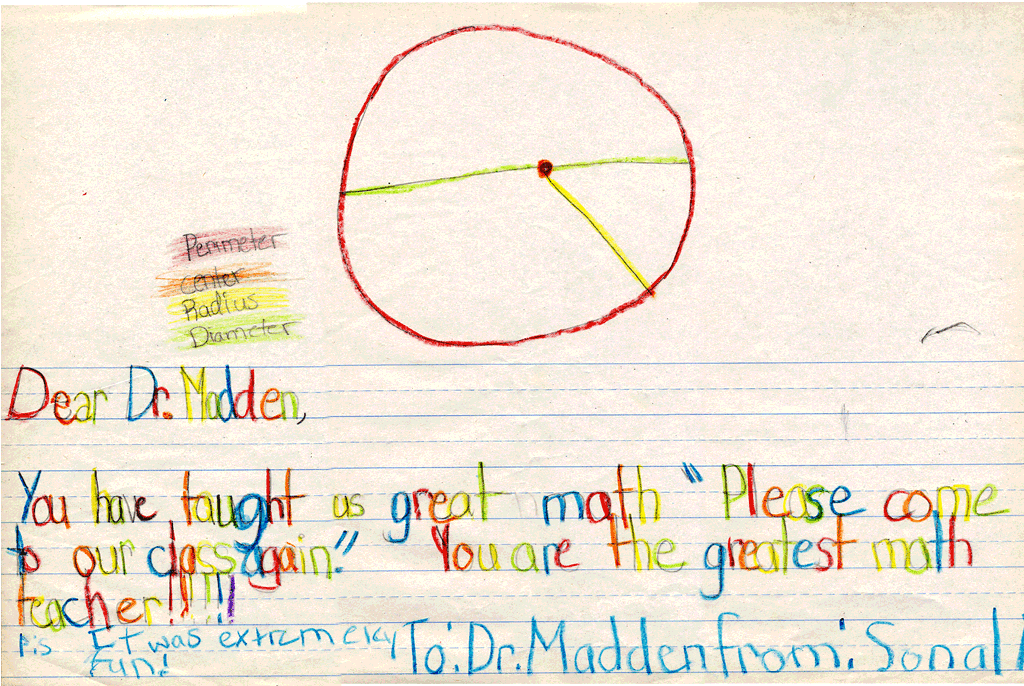 Perimeter
center
Radius
Diameter
Dear Dr. Madden,
You have taught us great math " Please come
to our class again." You are the greatest math
teacher!!!!!
P.S It was extremelay
fun!
To: Dr. Madden from: Sonali